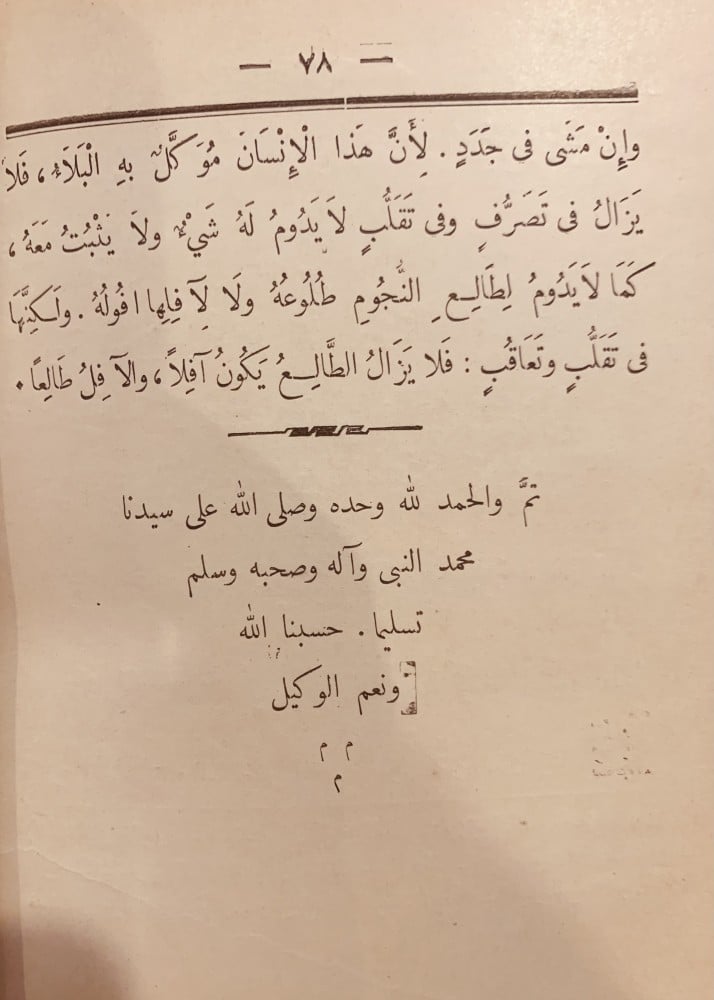 — ٧٨ —
وإِنْ مَشَى فى جَدَدٍ . لِأَنَّ هَذا الْإِنْسَانَ مُوَكَّلٌ بِهِ الْبَلَاءُ ، فَلاَ
يَزَالُ فى تَصَرُّفٍ وفى تَقَلُّبٍ لاَ يَدُومُ لَهُ شَيْءٌ ولاَ يَثْبُتُ مَعَهُ ،
كَمَا لاَ يَدُومُ لِطَالِعِ النُّجُومِ طُلُوعُهُ ولَا لِآفِلِها افُولُهُ . ولَـكِنَّهَا
فى تَقَلُّبٍ وتَعَاقُبٍ : فَلا يَزَالُ الطَّالِـعُ يَكُونُ آفِلاً ، والآفِلُ طَالِعًا .
تمَّ والحمد لله وحده وصلى الله على سيدنا
محمد النبى وآله وصحبه وسلم
تسليما . حسبنا الله
ونعم الوكيل
م م
م